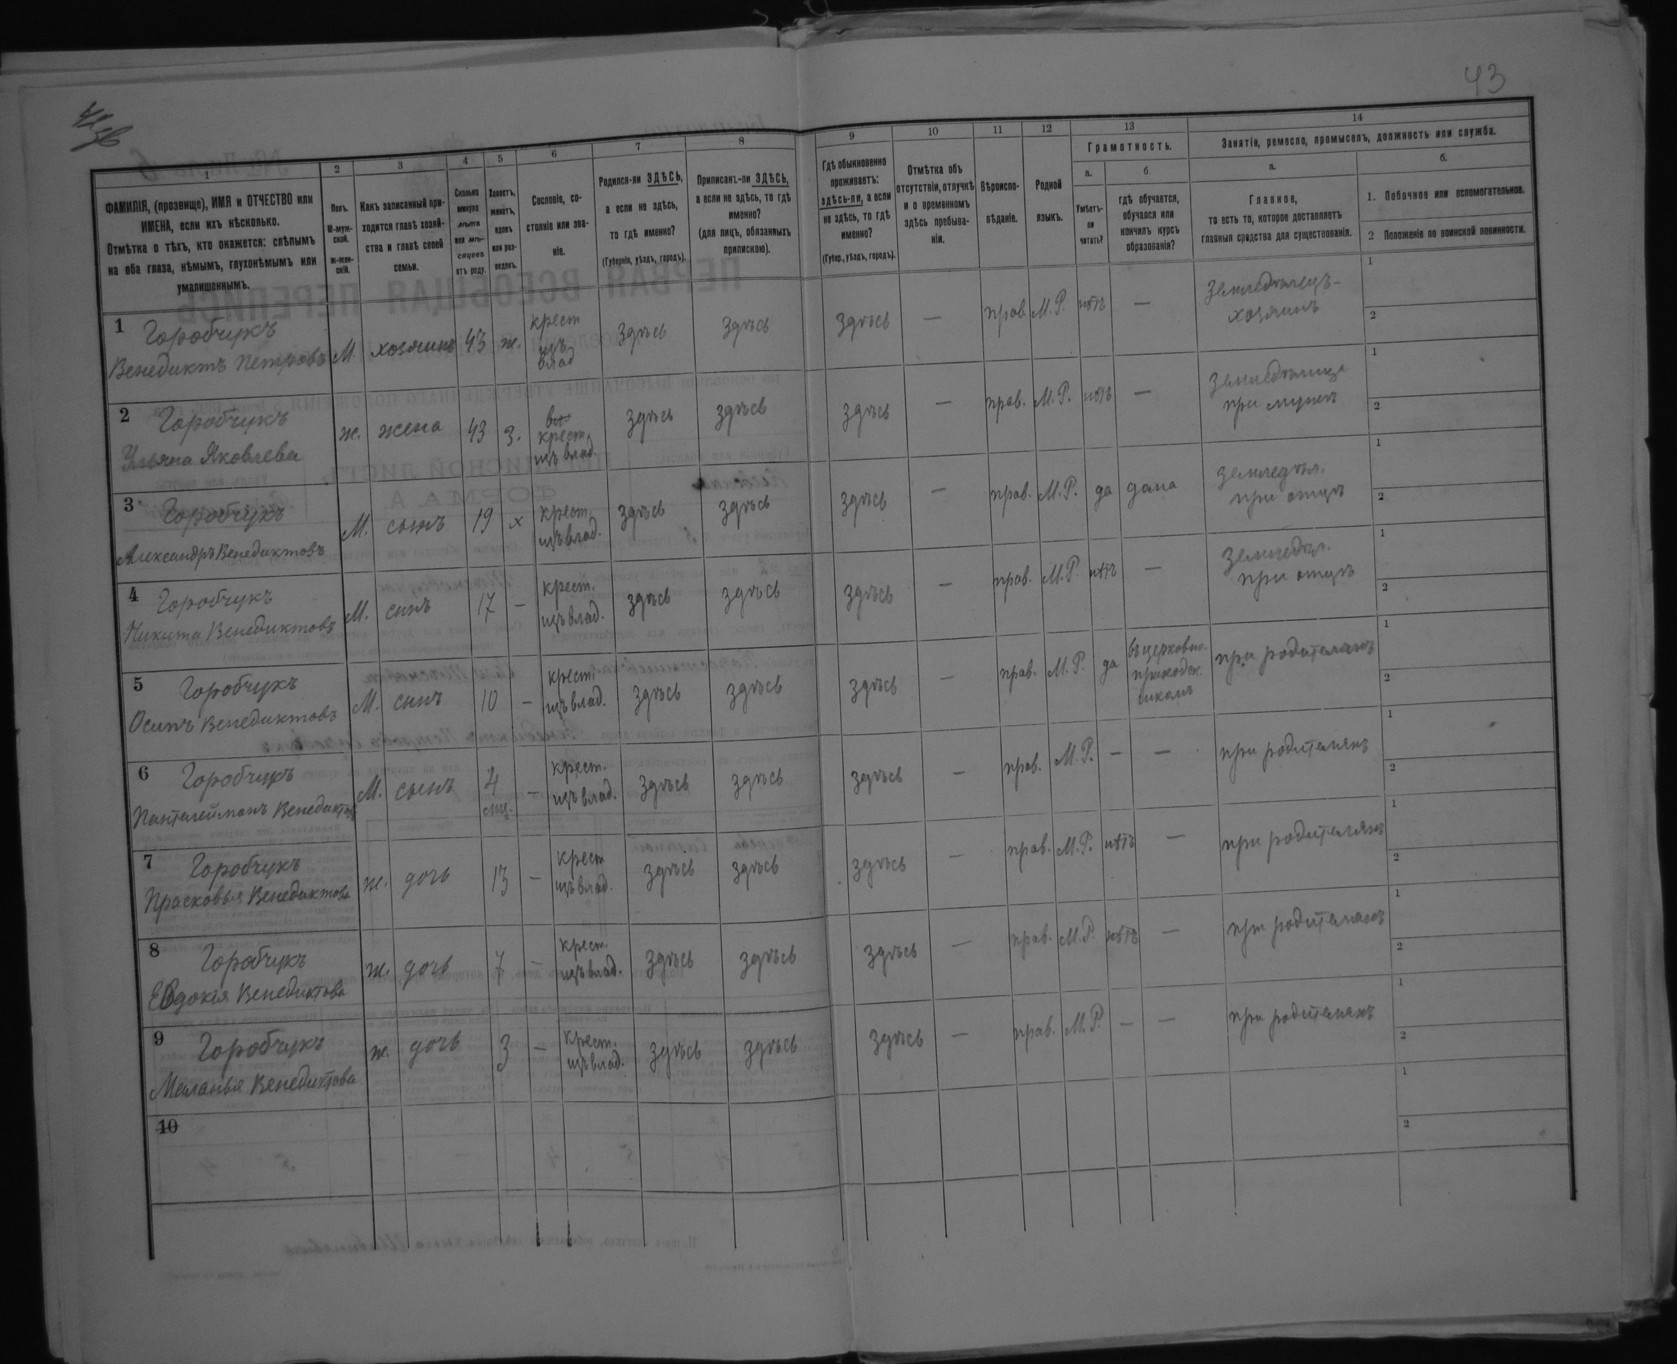 43
1
2
3
4
5
6
7
8
9
10
11
12
13
14
ФАМИЛІЯ, (прозвище), ИМЯ и ОТЧЕСТВО или
ИМЕНА, если ихъ нѣсколько.
Отмѣтка о тѣхъ, кто окажется: слѣпымъ
на оба глаза, нѣмымъ, глухонѣмымъ или
умалишеннымъ.
Полъ.
М-муж-
ской.
Ж-жен-
скій.
Какъ записанный при-
ходится главѣ хозяй-
ства и главѣ своей
семьи.
Сколько
минуло
лѣтъ
или мѣ-
сяцевъ
отъ роду.
Холостъ,
женатъ,
вдовъ
или раз-
веденъ.
Сословіе, со-
стояніе или зва-
ніе.
Родился-ли ЗДѢСЬ,
а если не здѣсь,
то гдѣ именно?
(Губернія, уѣздъ, городъ).
Приписанъ-ли ЗДѢСЬ,
а если не здѣсь, то гдѣ
именно?
(для лицъ, обязанныхъ
припискою).
Гдѣ обыкновенно
проживаетъ:
здѣсь-ли, а если
не здѣсь, то гдѣ
именно?
(Губер., уѣздъ, городъ).
Отмѣтка объ
отсутствіи, отлучкѣ
и о временномъ
здѣсь пребыва-
ніи.
Вѣроиспо-
вѣданіе.
Родной
языкъ.
Грамотность.
а.
Умѣетъ-
ли
читать?
б
гдѣ обучается,
обучался или
кончилъ курсъ
образованія?
Занятіе, ремесло, промыселъ, должность или служба.
а.
Главное,
то есть то, которое доставляетъ
главныя средства для существованія.
б.
1. Побочное или вспомогательное.
2 Положеніе по воинской повинности.
1 Горобчукъ
Венедиктъ Петровъ М. хозяинъ 43 ж. крест. изъ влад здѣсь здѣсь здѣсь — прав. М.Р. нѣтъ — Земледѣлецъ-хозяинъ 1 2
2 Горобчукъ
Ульяна Яковлева ж. жена 43 з. крест. изъ влад. здѣсь здѣсь здѣсь — прав. М.Р. нѣтъ — при мужѣ 1 2
3 Горобчукъ
Александръ Венедиктовъ М. сынъ 19 х крест. изъ влад. здѣсь здѣсь здѣсь — прав. М.Р. да дома Земледѣл. при отцѣ 1 2
4 Горобчукъ
Никита Венедиктовъ М. сынъ 17 — крест. изъ влад. здѣсь здѣсь здѣсь — прав. М.Р. нѣтъ — Земледѣл. при отцѣ 1 2
5 Горобчукъ
Осипъ Венедиктовъ М. сынъ 10 — крест. изъ влад. здѣсь здѣсь здѣсь — прав. М.Р. да въ церковно-приходск. школѣ при родителяхъ 1 2
6 Горобчукъ
Пантелеймонъ Венедиктов М. сынъ 4 мѣс. — крест. изъ влад. здѣсь здѣсь здѣсь — прав. М.Р. — — при родителяхъ 1 2
7 Горобчукъ
Прасковья Венедиктова ж. дочь 13 — крест изъ влад. здѣсь здѣсь здѣсь — прав. М.Р. нѣтъ — при родителяхъ 1 2
8 Горобчукъ
Евдокія Венедиктова ж. дочь 7 — крест. изъ влад. здѣсь здѣсь здѣсь — прав. М.Р. нѣтъ — при родителяхъ 1 2
9 Горобчукъ
Меланья Венедиктова ж. дочь 3 — крест. изъ влад. здѣсь здѣсь здѣсь — прав. М.Р. — — при родителяхъ 1 2
10 1 2